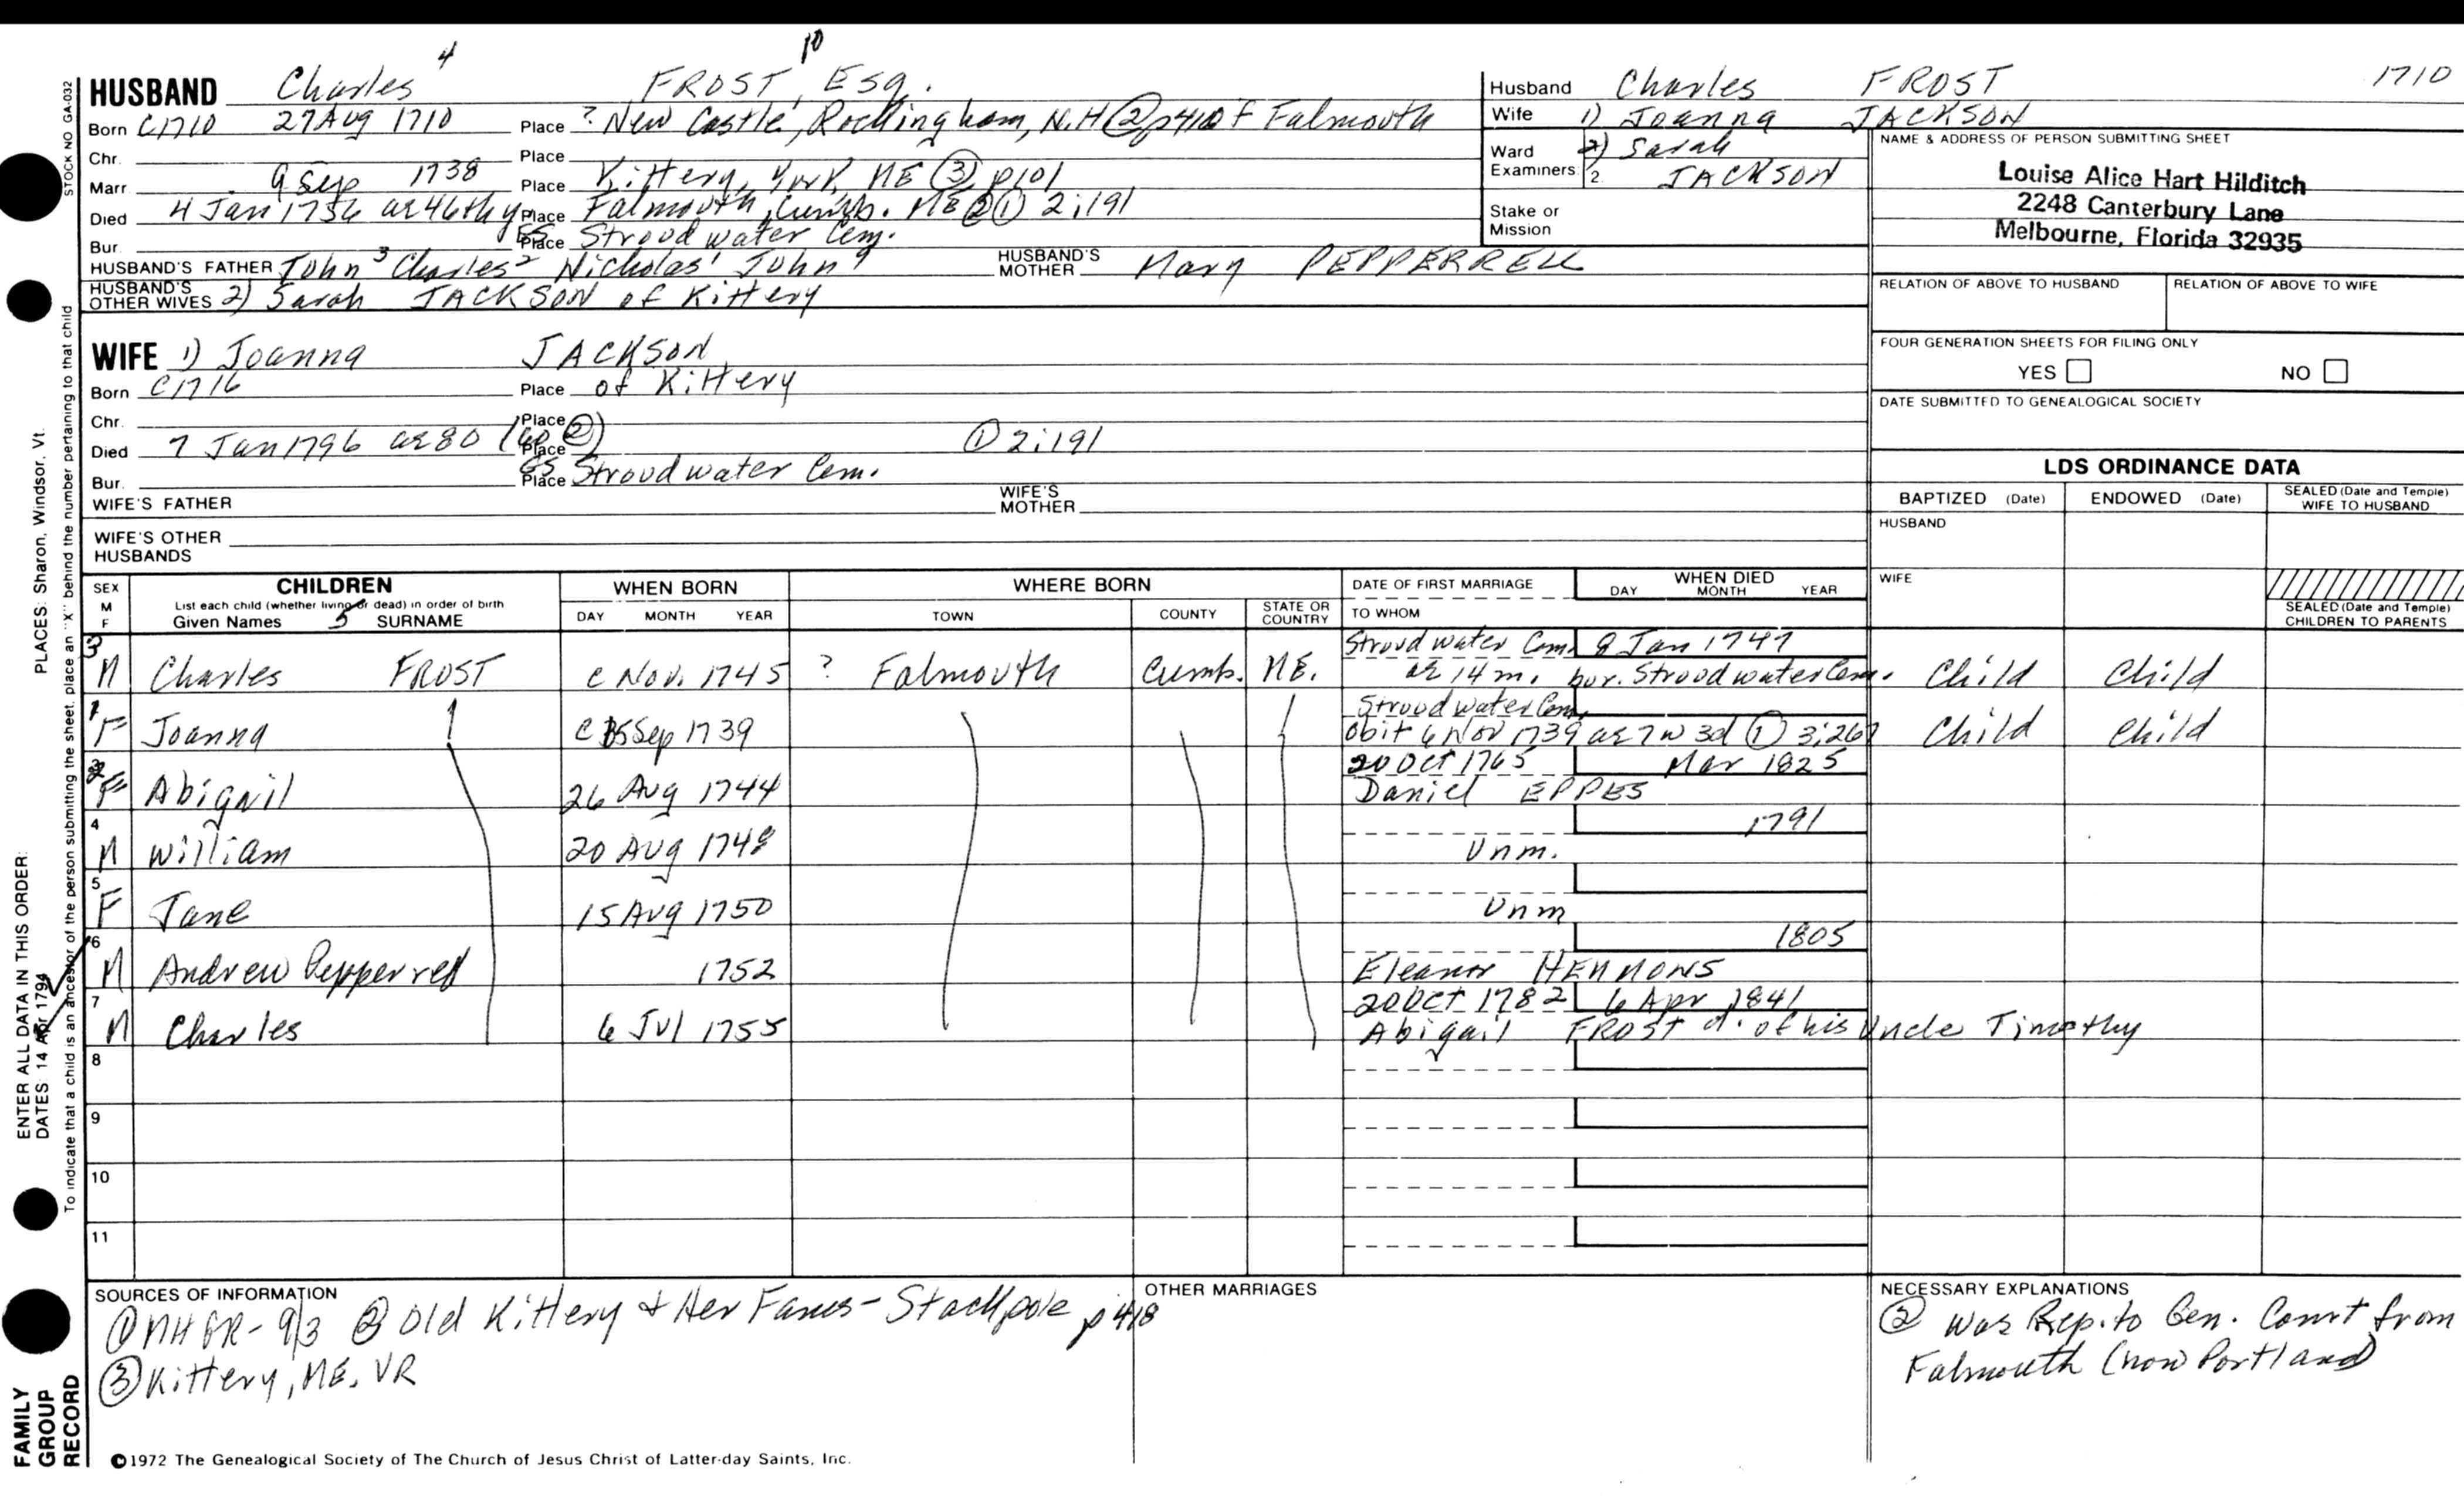 4 10
HUSBAND Charles FROST, Esq.
Born c1710 27 Aug 1710 Place ? New Castle, Rockingham, N.H ② p410 f Falmouth
Chr. Place
Marr 9 Sep 1738 Place Kittery, York, ME ③ p101
Died 4 Jan 1756 ae 46th y Place Falmouth, Cumb. ME ② ① 2:191
Bur. Place GS Stroudwater Cem.
HUSBAND'S FATHER John 3 Charles 2 Nicholas 1 John 9 HUSBAND'S MOTHER Mary PEPPERRELL
HUSBAND'S OTHER WIVES 2) Sarah JACKSON of Kittery
WIFE 1) Joanna JACKSON
Born c1716 Place of Kittery
Chr. Place
Died 7 Jan 1796 ae 80 (60 ②) Place ① 2:191
Bur. Place GS Stroudwater Cem.
WIFE'S FATHER WIFE'S MOTHER
WIFE'S OTHER HUSBANDS
Husband Charles FROST 1710
Wife 1) Joanna JACKSON
Ward 2) Sarah
Examiners: 2. JACKSON
Stake or Mission
NAME & ADDRESS OF PERSON SUBMITTING SHEET
Louise Alice Hart Hilditch
2248 Canterbury Lane
Melbourne, Florida 32935
RELATION OF ABOVE TO HUSBAND RELATION OF ABOVE TO WIFE
FOUR GENERATION SHEETS FOR FILING ONLY
YES NO
DATE SUBMITTED TO GENEALOGICAL SOCIETY
LDS ORDINANCE DATA
BAPTIZED (Date) ENDOWED (Date) SEALED (Date and Temple) WIFE TO HUSBAND
HUSBAND
WIFE
SEALED (Date and Temple) CHILDREN TO PARENTS
SEX M F CHILDREN WHEN BORN WHERE BORN DATE OF FIRST MARRIAGE WHEN DIED
List each child (whether living or dead) in order of birth
Given Names 5 SURNAME DAY MONTH YEAR TOWN COUNTY STATE OR COUNTRY TO WHOM DAY MONTH YEAR
3 Stroudwater Cem. 9 Jan 1747
M Charles FROST c Nov. 1745 ? Falmouth Cumb. ME. ae 14 m. bur. Stroudwater Cem. Child Child
1 Stroudwater Cem.
F Joanna c 15 Sep 1739 obit 6 Nov 1739 ae 7 w 3d ① 3:267 Child Child
2 20 Oct 1765 Mar 1825
F Abigail 26 Aug 1744 Daniel EPPES
4 1791
M William 20 Aug 1748 Unm.
5
F Jane 15 Aug 1750 Unm
6 1805
M Andrew Pepperrell 1752 Eleanor HEMMONS
7 20 Oct 1782 6 Apr 1841
M Charles 6 Jul 1755 Abigail FROST d. of his Uncle Timothy
8
9
10
11
SOURCES OF INFORMATION
① NHGR-9/3 ② Old Kittery & Her Fams - Stackpole p 418
③ Kittery, ME, VR
OTHER MARRIAGES
NECESSARY EXPLANATIONS
② Was Rep. to Gen. Court from
Falmouth (now Portland)
©1972 The Genealogical Society of The Church of Jesus Christ of Latter-day Saints, Inc.
STOCK NO GA-032
PLACES: Sharon, Windsor, Vt.
ENTER ALL DATA IN THIS ORDER:
DATES: 14 Apr 1794
To indicate that a child is an ancestor of the person submitting the sheet, place an "X" behind the number pertaining to that child
FAMILY
GROUP
RECORD